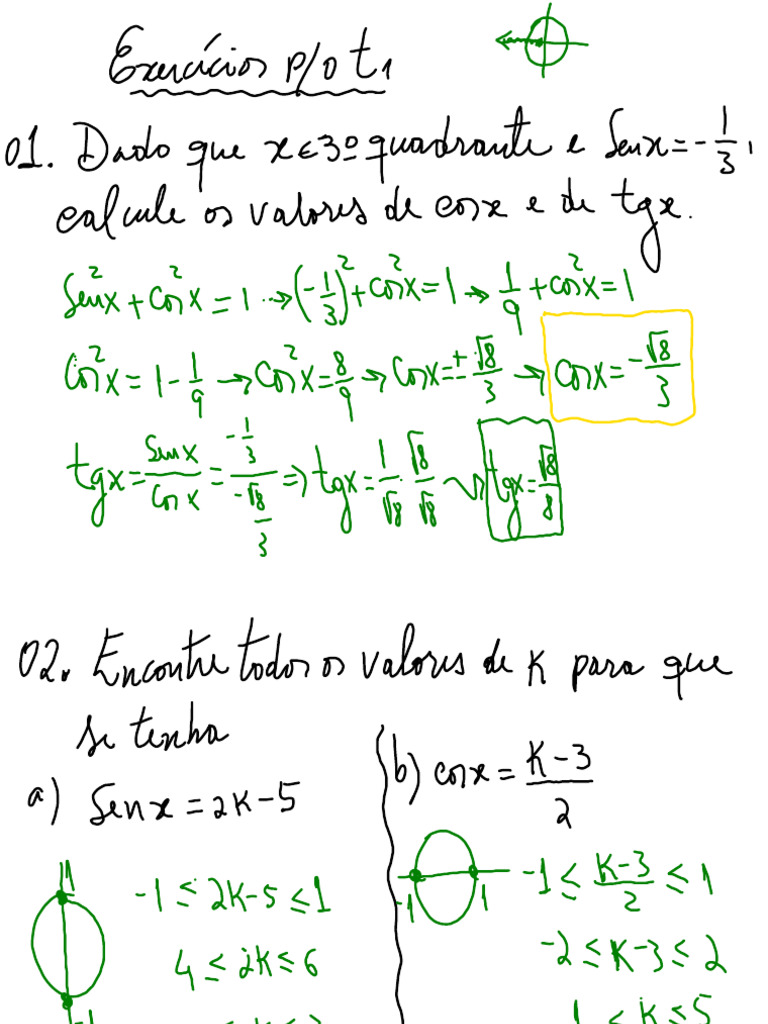 Exercícios p/o t₁
01. Dado que x ∈ 3º quadrante e Senx = -1/3,
calcule os valores de cosx e de tgx.
Sen²x + Cos²x = 1 → (-1/3)² + Cos²x = 1 → 1/9 + cos²x = 1
Cos²x = 1 - 1/9 → Cos²x = 8/9 → Cosx = ± √8/3 → Cosx = -√8/3
tgx = Senx/Cosx = (-1/3)/(-√8/3) ⇒ tgx = 1/√8 · √8/√8 → tgx = √8/8
02. Encontre todos os valores de K para que
se tenha
a) Senx = 2K-5
1
-1 ≤ 2K-5 ≤ 1
4 ≤ 2K ≤ 6
-1
b) cosx = (K-3)/2
-1 1
-1 ≤ (K-3)/2 ≤ 1
-2 ≤ K-3 ≤ 2
1 ≤ K ≤ 5